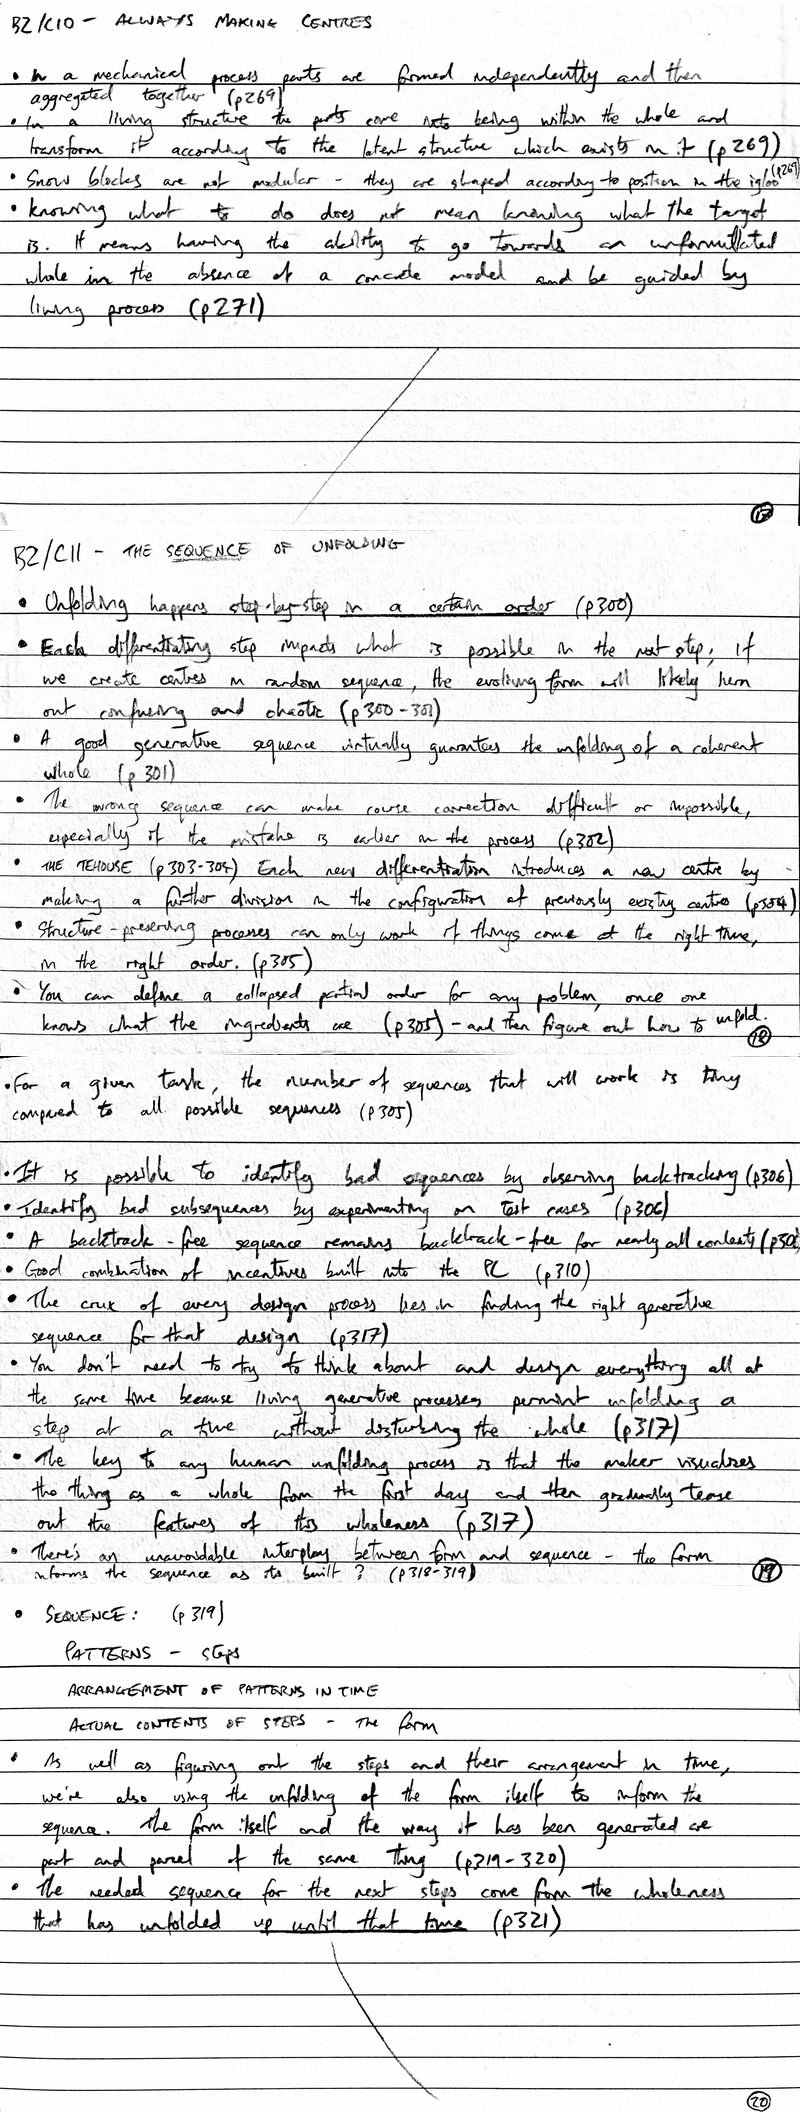 B2/C10 - ALWAYS MAKING CENTRES
• In a mechanical process parts are formed independently and then
aggregated together (p269)
• In a living structure the parts come into being within the whole and
transform it according to the latent structure which exists in it (p269)
• Snow blocks are not modular - they are shaped according to position in the igloo (p269)
• Knowing what to do does not mean knowing what the target
is. It means having the ability to go towards an unformulated
whole in the absence of a concrete model and be guided by
living process (p271)
17
B2/C11 - THE SEQUENCE OF UNFOLDING
• Unfolding happens step-by-step in a certain order (p300)
• Each differentiating step impacts what is possible in the next step; if
we create centres in random sequence, the evolving form will likely turn
out confusing and chaotic (p300-301)
• A good generative sequence virtually guarantees the unfolding of a coherent
whole (p301)
• The wrong sequence can make course correction difficult or impossible,
especially if the mistake is earlier in the process (p302)
• THE TEHOUSE (p303-304) Each new differentiation introduces a new centre by
making a further division in the configuration of previously existing centres (p304)
• Structure-preserving processes can only work if things come at the right time,
in the right order. (p305)
• You can define a collapsed partial order for any problem, once one
knows what the ingredients are (p305) - and then figure out how to unfold.
18
• For a given task, the number of sequences that will work is tiny
compared to all possible sequences (p305)
• It is possible to identify bad sequences by observing backtracking (p306)
• Identify bad subsequences by experimenting on test cases (p306)
• A backtrack-free sequence remains backtrack-free for nearly all contexts
• Good combination of incentives built into the PL (p310)
• The crux of every design process lies in finding the right generative
sequence for that design (p317)
• You don't need to try to think about and design everything all at
the same time because living generative processes permint unfolding a
step at a time without disturbing the whole (p317)
• The key to any human unfolding process is that the maker visualizes
the thing as a whole from the first day and then gradually tease
out the features of this wholeness (p317)
• There's an unavoidable interplay between form and sequence - the form
informs the sequence as its built? (p318-319)
19
• SEQUENCE: (p319)
PATTERNS - steps
ARRANGEMENT OF PATTERNS IN TIME
ACTUAL CONTENTS OF STEPS - the form
• As well as figuring out the steps and their arrangement in time,
we're also using the unfolding of the form itself to inform the
sequence. The form itself and the way it has been generated are
part and parcel of the same thing (p319-320)
• The needed sequence for the next steps come from the wholeness
that has unfolded up until that time (p321)
20